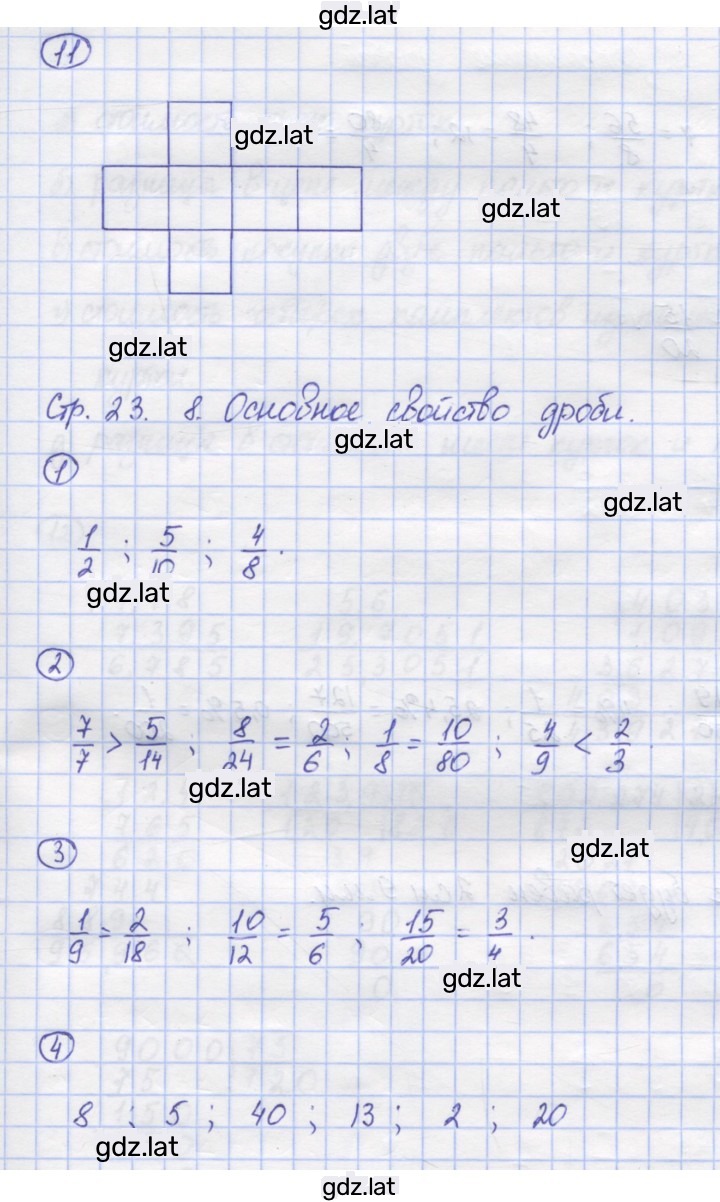 gdz.lat
11
gdz.lat
gdz.lat
gdz.lat
Стр. 23. 8. Основное свойство дроби.
gdz.lat
1
gdz.lat
1/2 ; 5/10 ; 4/8 .
gdz.lat
2
7/7 > 5/14 ; 8/24 = 2/6 ; 1/8 = 10/80 ; 4/9 < 2/3 .
gdz.lat
3
gdz.lat
1/9 = 2/18 ; 10/12 = 5/6 ; 15/20 = 3/4 .
gdz.lat
4
8 ; 5 ; 40 ; 13 ; 2 ; 20
gdz.lat
gdz.lat